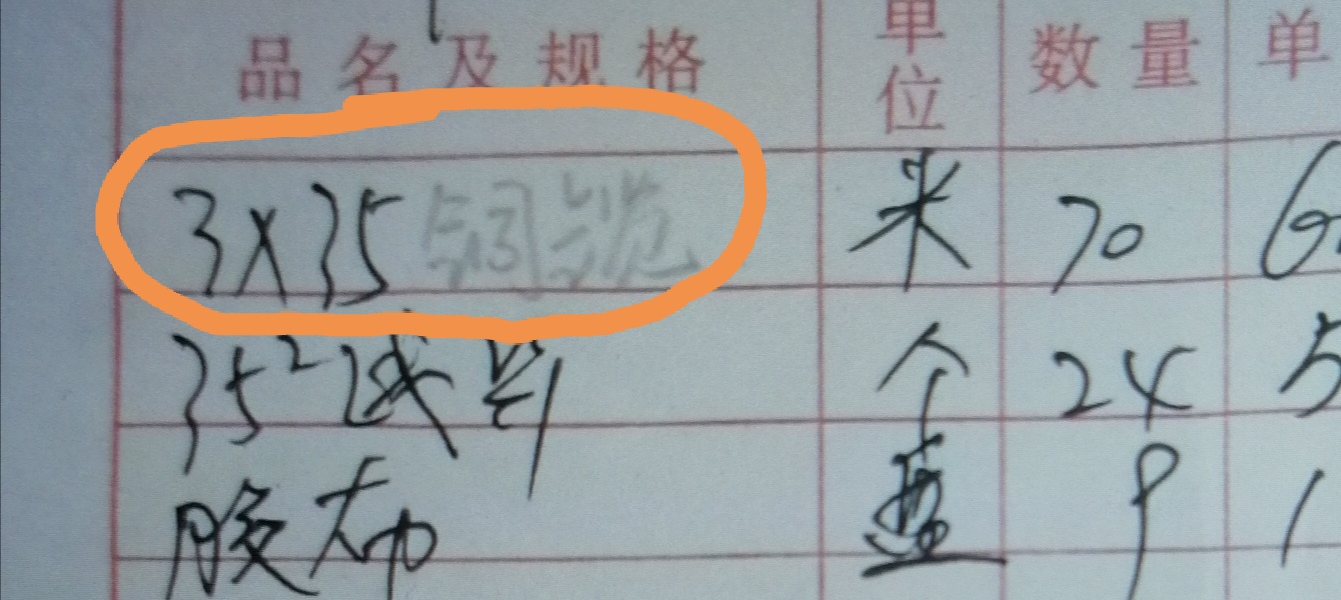 品名及规格 单位 数量 单
3X35铜缆 米 70 6
35² 个 24 5
胶布 盘 9 1